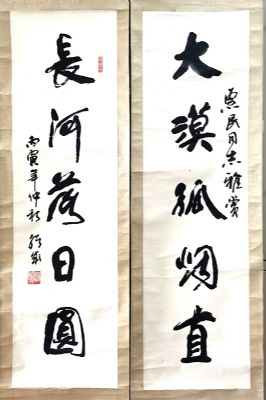 大漠孤烟直
惠民同志雅赏
長河落日圓
丙寅年仲秋